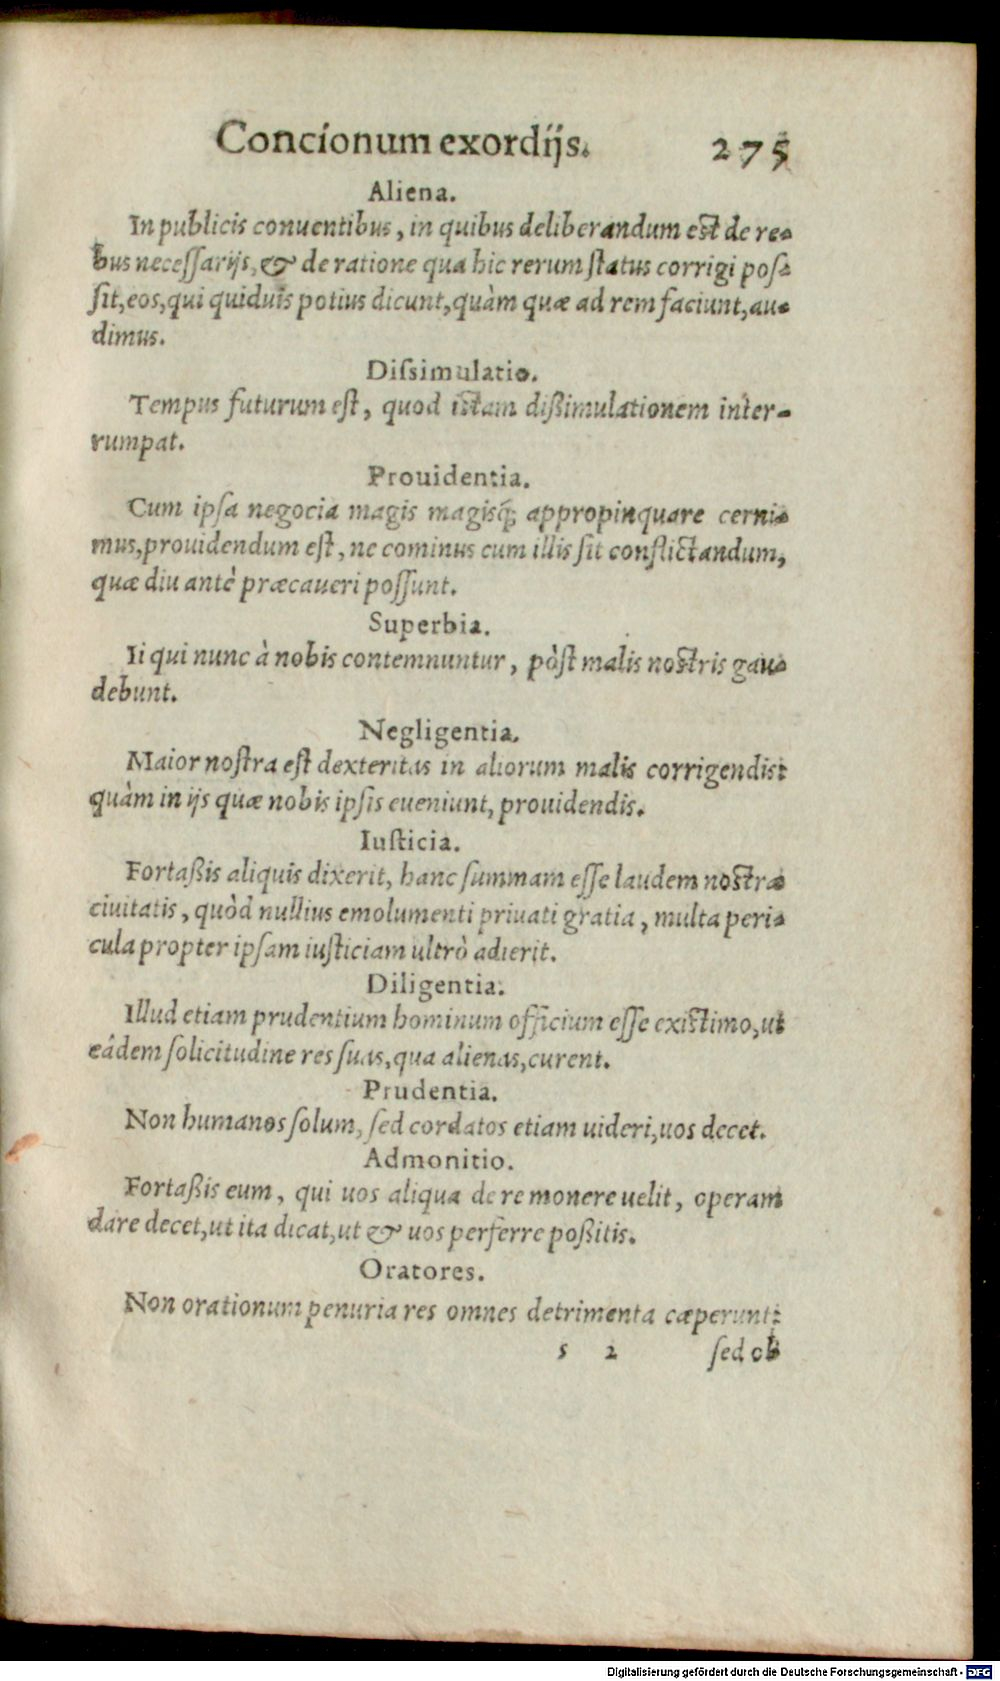 Concionum exordijs. 275
Aliena.
In publicis conuentibus, in quibus deliberandum est de re-
bus necessarijs, & de ratione qua hic rerum status corrigi pos-
sit, eos, qui quiduis potius dicunt, quàm quæ ad rem faciunt, au-
dimus.
Dissimulatio.
Tempus futurum est, quod istam dißimulationem inter-
rumpat.
Prouidentia.
Cum ipsa negocia magis magisq́; appropinquare cerni-
mus, prouidendum est, ne cominus cum illis sit conflictandum,
quæ diu antè præcaueri possunt.
Superbia.
Ii qui nunc à nobis contemnuntur, pòst malis nostris gau-
debunt.
Negligentia.
Maior nostra est dexteritas in aliorum malis corrigendis:
quàm in ijs quæ nobis ipsis eueniunt, prouidendis.
Iusticia.
Fortaßis aliquis dixerit, hanc summam esse laudem nostræ
ciuitatis, quòd nullius emolumenti priuati gratia, multa peri-
cula propter ipsam iusticiam ultrò adierit.
Diligentia.
Illud etiam prudentium hominum officium esse existimo, ut
eâdem solicitudine res suas, qua alienas, curent.
Prudentia.
Non humanos solum, sed cordatos etiam uideri, uos decet.
Admonitio.
Fortaßis eum, qui uos aliqua de re monere uelit, operam
dare decet, ut ita dicat, ut & uos perferre poßitis.
Oratores.
Non orationum penuria res omnes detrimenta cæperunt:
s 2 sed ob
Digitalisierung gefördert durch die Deutsche Forschungsgemeinschaft - DFG